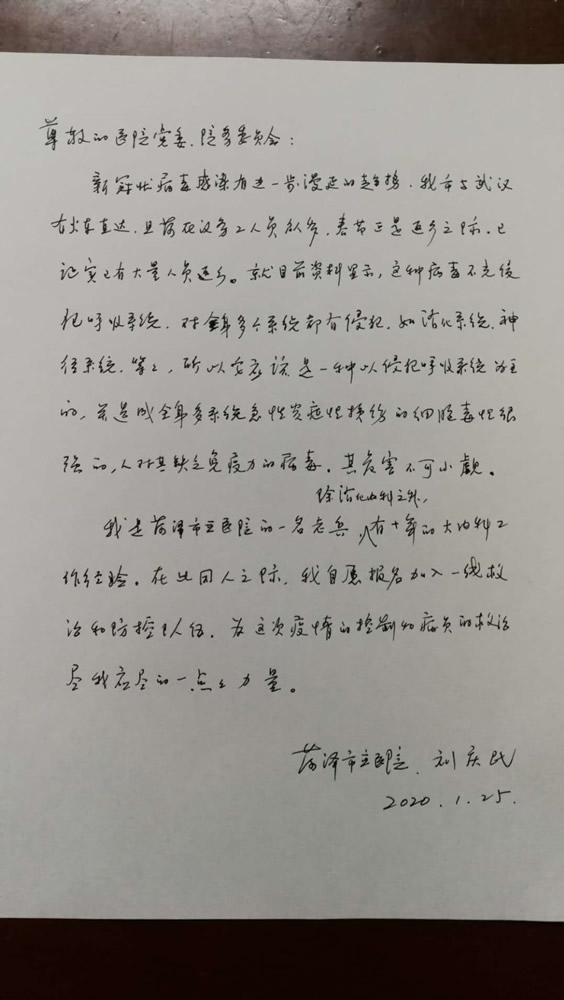 尊敬的医院党委、院务委员会：
新冠状病毒感染有进一步漫延的趋势，我市与武汉
有火车直达，且荷在汉务工人员众多，春节正是返乡之际，已
证实已有大量人员返乡。就目前资料显示，这种病毒不光侵
犯呼吸系统，对全身多个系统都有侵犯，如消化系统、神
经系统，等等，所以它应该是一种以侵犯呼吸系统为主
的，并造成全身多系统急性炎症性损伤的细胞毒性很
强的，人对其缺乏免疫力的病毒。其危害不可小觑。
除消化内科之外，
我是菏泽市立医院的一名老兵，有十年的大内科工
作经验。在此困人之际，我自愿报名加入一线救
治和防控队伍，为这次疫情的控制和病员的救治
尽我应尽的一点点力量。
菏泽市立医院、刘庆民
2020.1.25.